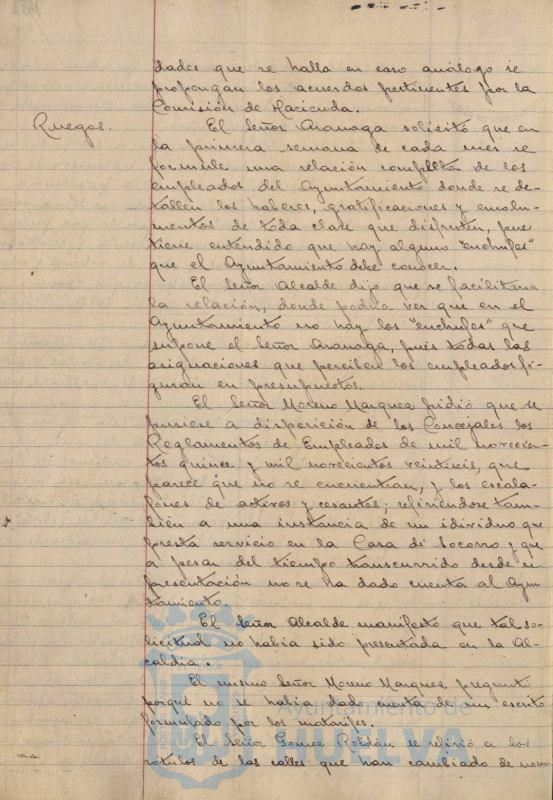 dades que se halla en caso análogo se
propongan los acuerdos pertinentes por la
Comisión de Hacienda.
Ruegos.
El Señor Aranaga solicitó que en
la primera semana de cada mes se
formule una relación completa de los
empleados del Ayuntamiento donde se de-
tallen los haberes, gratificaciones y emolu-
mentos de toda clase que disfruten, pues
tiene entendido que hay alguno "enchufes"
que el Ayuntamiento debe conocer.
El Señor Alcalde dijo que se facilitaria
la relación, donde podria ver que en el
Ayuntamiento no hay los "enchufes" que
supone el Señor Aranaga, pues todas las
asignaciones que perciben los empleados fi-
guran en presupuestos.
El Señor Moreno Marquez pidió que se
pusiese a disposición de los Concejales los
Reglamentos de Empleados de mil novecien-
tos quince y mil novecientos veintiseis, que
parece que no se encuentran, y los escala-
fones de activos y cesantes; refiriendose tam-
bién a una instancia de un idividuo que
presta servicio en la Casa de Socorro y que
a pesar del tiempo transcurrido desde su
presentación no se ha dado cuenta al Ayun-
tamiento.
El Señor Alcalde manifestó que tal so-
licitud no habia sido presentada en la Al-
caldia.
El mismo Señor Moreno Marquez preguntó
porqué no se habia dado cuenta de un escrito
formulado por los matarifes.
El Señor Gomez Roldán se refirió a los
rótulos de las calles que han cambiado de nom-
Ayuntamiento de
HUELVA